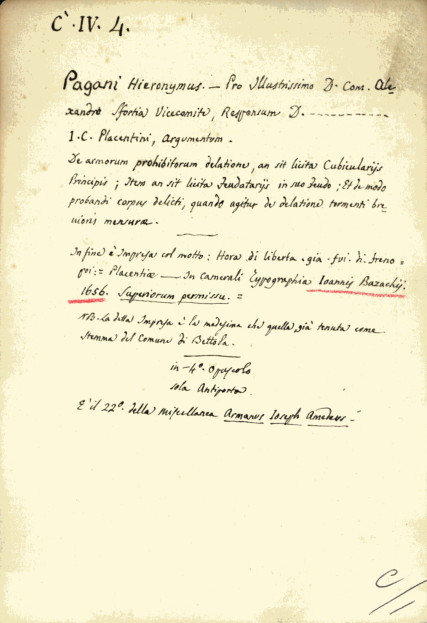 C˙ IV. 4.
Pagani Hieronymus. — Pro Illustrissimo D. Com. Ale-
xandro Sfortia Vicecomite, Responsum D. - - - - - - - - - -
I. C. Placentini, Argumentum.
De armorum prohibitorum delatione, an sit licita Cubicularijs
Principis; Item an sit licita Feudatarijs in suo feudo; Et de modo
probandi corpus delicti, quando agitur de delatione tormenti bre-
vioris mensurae.
In fine è Impresa col motto: Hora. di liberta. gia. fui. di. freno =
poi: = Placentiae — In Camerali Typographia Ioannis Bazachij.
1656. Superiorum permissu. =
NB. La detta Impresa è la medesima che quella già tenuta come
stemma del Comune di Bettola.
in - 4°. Opuscolo
sola Antiporta.
È il 22°. della miscellanea Armanus Ioseph Amedeus =
C/1